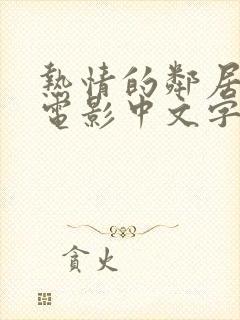 熱情的鄰居
電影中文字
貪火